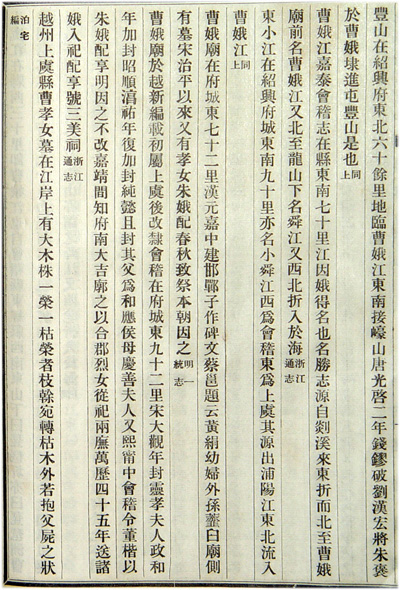 豐山在紹興府東北六十餘里地臨曹娥江東南接嶀山唐光啓二年錢鏐破劉漢宏將朱褒
於曹娥埭進屯豐山是也同上
曹娥江嘉泰會稽志在縣東南七十里江因娥得名也名勝志源自剡溪來東折而北至曹娥
廟前名曹娥江又北至龍山下名舜江又西北折入於海浙江通志
東小江在紹興府城東南九十里亦名小舜江西爲會稽東爲上虞其源出浦陽江東北流入
曹娥江同上
曹娥廟在府城東七十二里漢元嘉中建邯鄲子作碑文蔡邕題云黃絹幼婦外孫虀臼廟側
有墓宋治平以來又有孝女朱娥配春秋致祭本朝因之明一統志
曹娥廟於越新編載初屬上虞後改隸會稽在府城東九十二里宋大觀年封靈孝夫人政和
年加封昭順淳祐年復加封純懿且封其父爲和應侯母慶善夫人又熙甯中會稽令董楷以
朱娥配享明因之不改嘉靖間知府南大吉廓之以合郡烈女從祀兩廡萬歷四十五年送諸
娥入祀配享號三美祠浙江通志
越州上虞縣曹孝女墓在江岸上有大木株一榮一枯榮者枝幹宛轉枯木外若抱父屍之狀
泊宅編